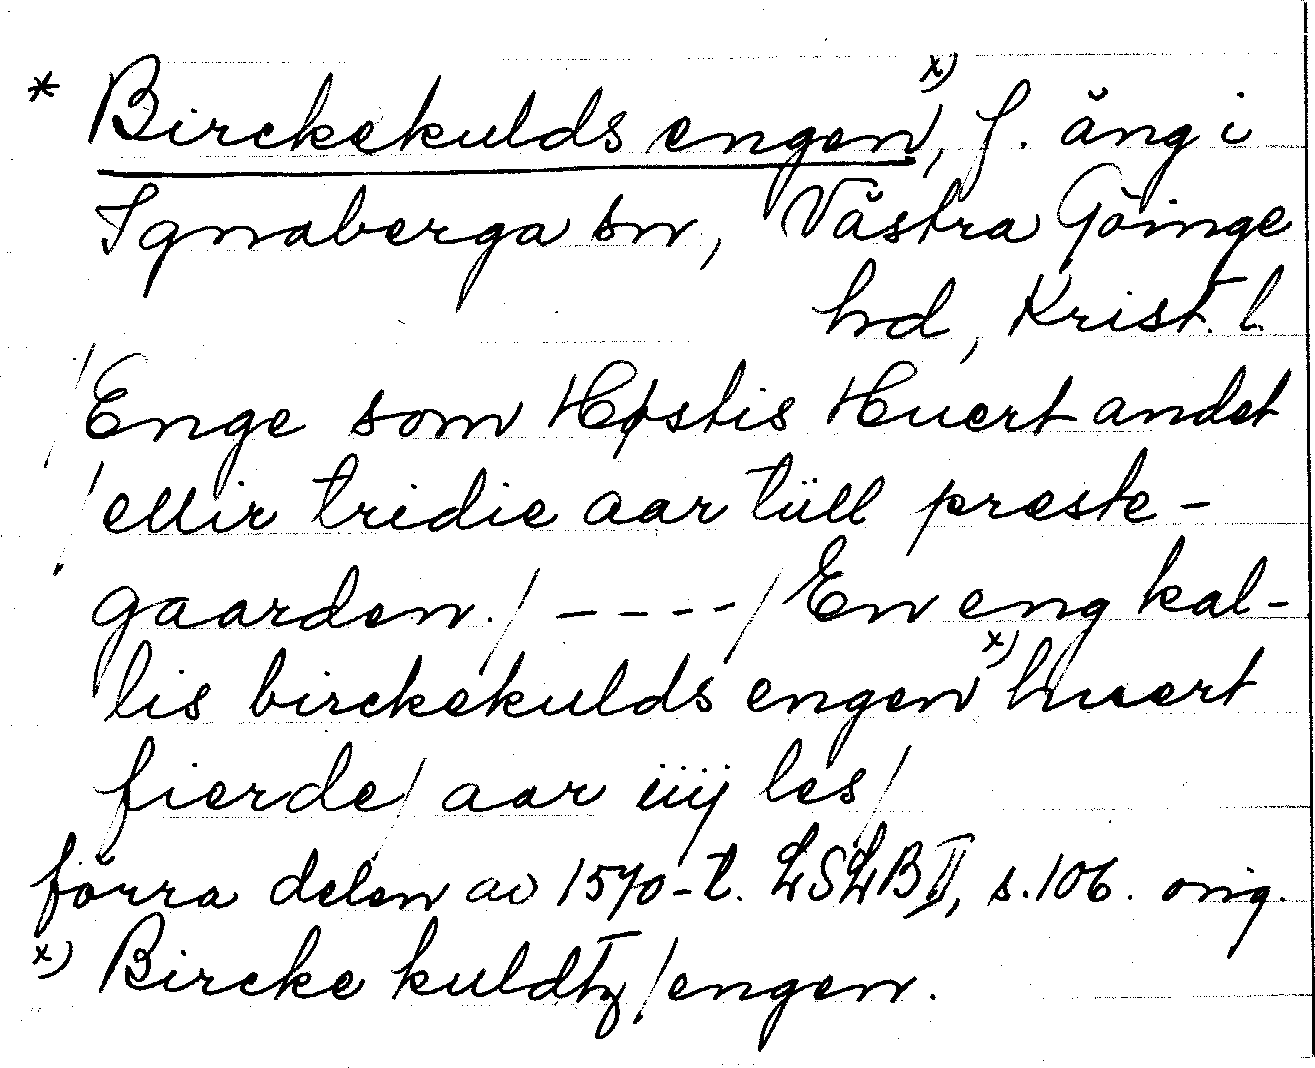 * Birckekulds engen x), f. äng i
Ignaberga sn, Västra Göinge
hd, Krist. l.
/Enge som Høstis Huert andet
/ellir tridie aar tüll præste-
gaarden./ ---- / En eng kal-
lis birckekulds engen x) huert
fierde/ aar iiij les/
förra delen av 1570-t. LSLB II, s. 106. orig.
x) Bircke kuldtz/engen.